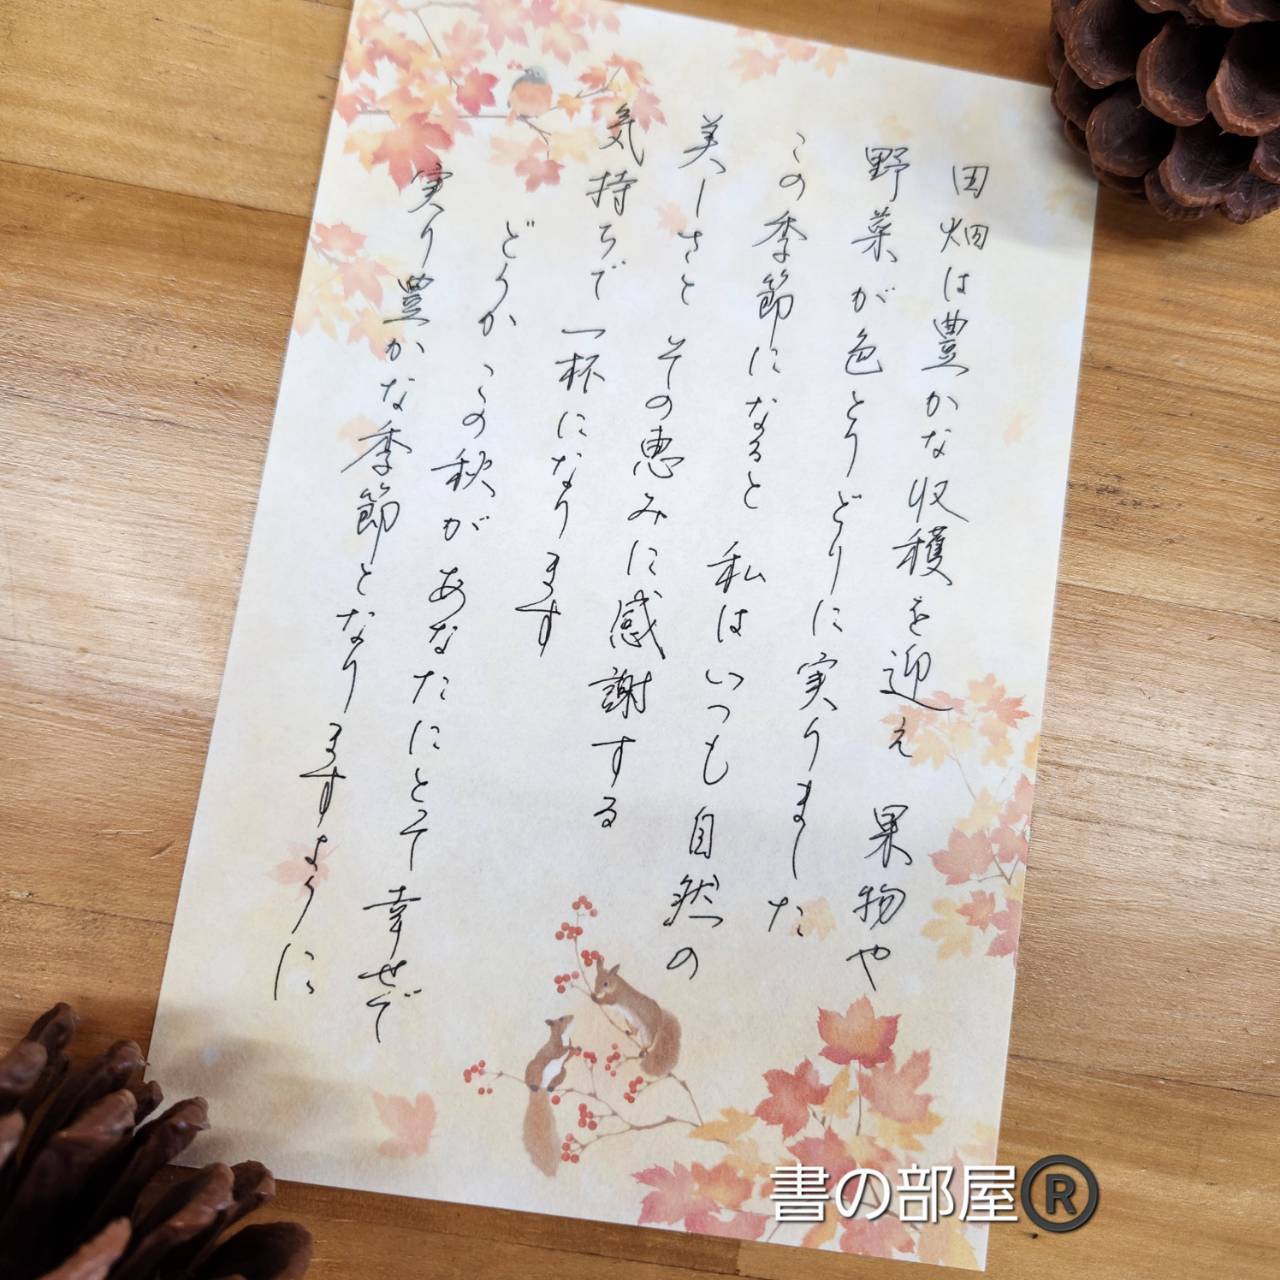 田畑は豊かな収穫を迎え 果物や
野菜が色とりどりに実りました
この季節になると 私はいつも自然の
美しさと その恵みに感謝する
気持ちで一杯になります
どうか この秋が あなたにとって幸せで
実り豊かな季節となりますように
書の部屋®